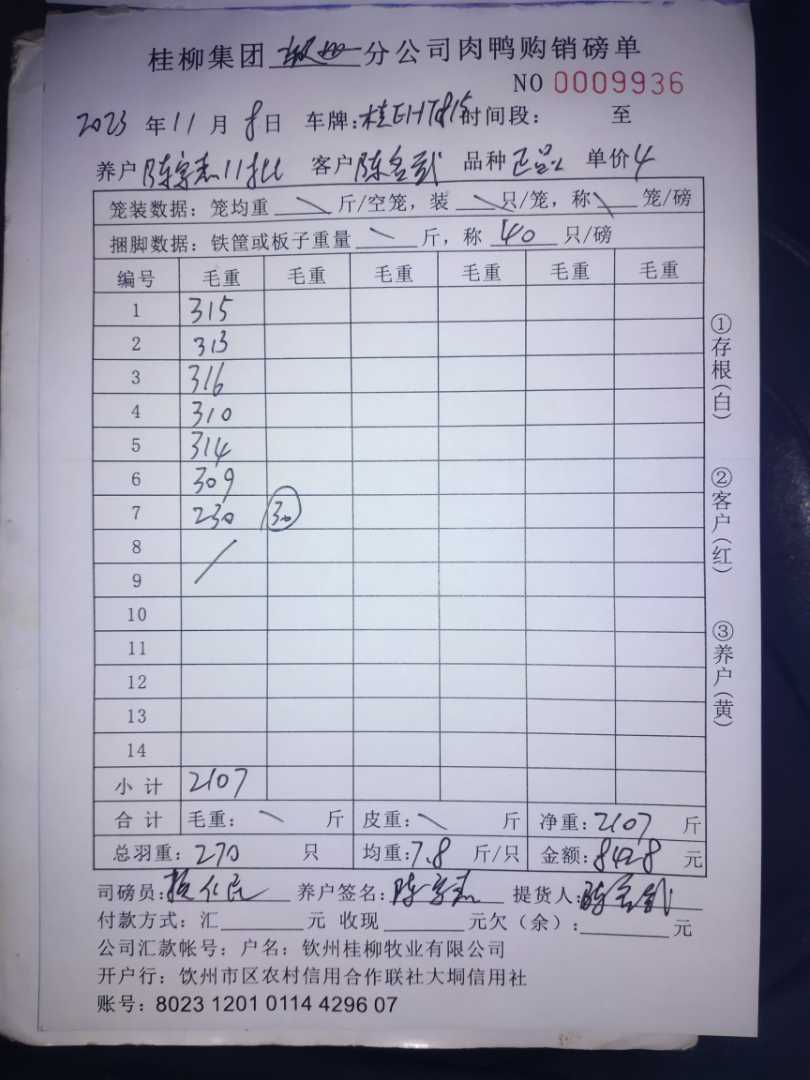 桂柳集团 分公司肉鸭购销磅单
NO 0009936
2023 年 11 月 8 日 车牌:桂EHT815 时间段: 至
养户 陈字志11批 客户 陈 武 品种 单价 4
笼装数据:笼均重 \ 斤/空笼,装 \ 只/笼,称 \ 笼/磅
捆脚数据:铁筐或板子重量 \ 斤,称 40 只/磅
编号 毛重 毛重 毛重 毛重 毛重 毛重
1 315
2 313
3 316
4 310
5 314
6 309
7 230 30
8 /
9
10
11
12
13
14
小计 2107
合计 毛重: \ 斤 皮重: \ 斤 净重:2107 斤
总羽重:270 只 均重:7.8 斤/只 金额:8428 元
司磅员: 养户签名:陈字志 提货人:陈 武
付款方式:汇 元 收现 元欠(余): 元
公司汇款帐号:户名:钦州桂柳牧业有限公司
开户行:饮州市区农村信用合作联社大垌信用社
账号:8023 1201 0114 4296 07
①存根(白)
②客户(红)
③养户(黄)